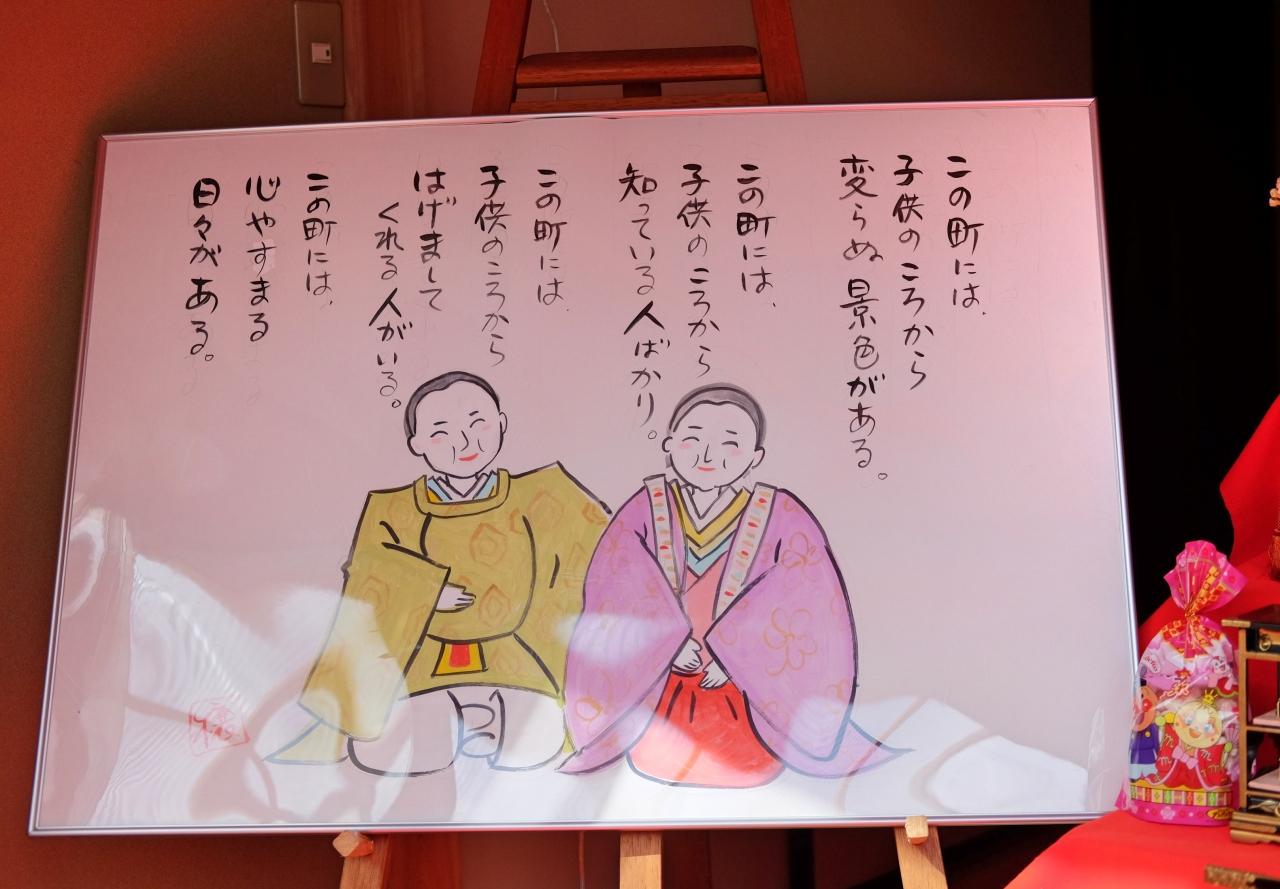 この町には、
子供のころから
変らぬ景色がある。
この町には、
子供のころから
知っている人ばかり。
この町には、
子供のころから
はげまして
くれる人がいる。
この町には、
心やすまる
日々がある。